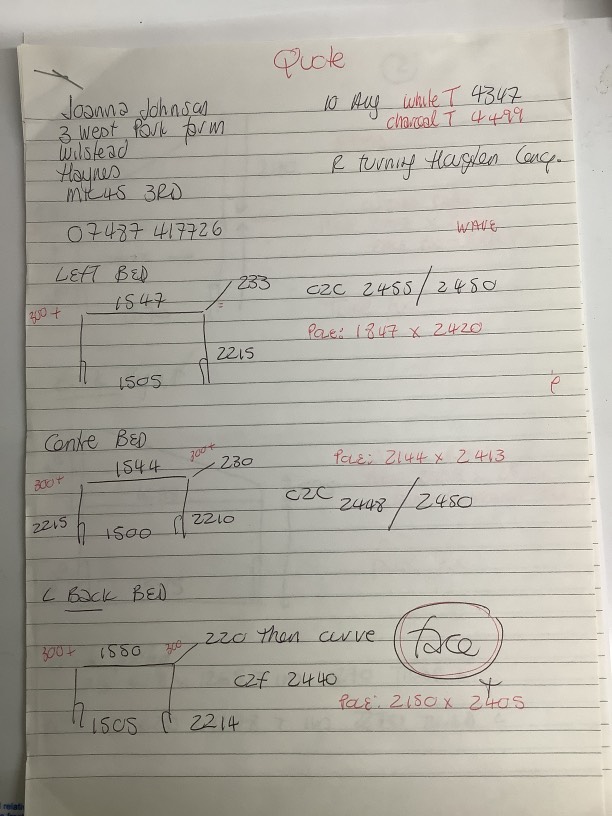 Quote
Joanna Johnson
3 West Park farm
Wilstead
Haynes
MK45 3RD
07487 417726
10 Aug white T 4347
charcoal T 4499
R turning Hagden Lane.
WAVE
LEFT BED
1547
233
300+
2215
1505
C2C 2455/2450
Pole: 1847 x 2420
è
Centre BED
1544
300+
230
300+
2215
1500
2210
Pole: 2144 x 2413
C2C 2448/2450
L Back BED
300+
1550
300
220 then curve
face
C2f 2440
Pole: 2150 x 2405
1505
2214